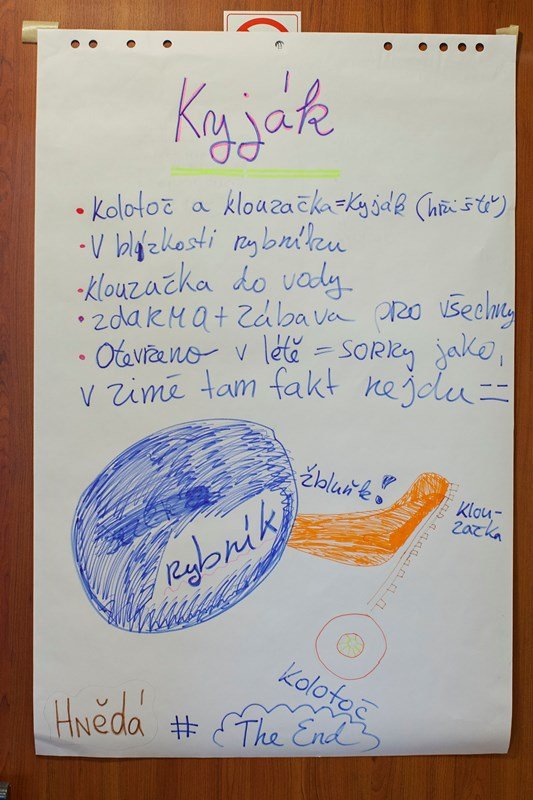 Kyják
• Kolotoč a klouzačka=Kyják (hřiště)
• V blízkosti rybníku
• Klouzačka do vody
• zdaRMA + zábava pro všechny
• Otevřeno v létě = SORRy jako,
v zimě tam fakt nejdu =
žbluňk!
rybník
klou-
začka
Kolotoč
Hnědá # The End